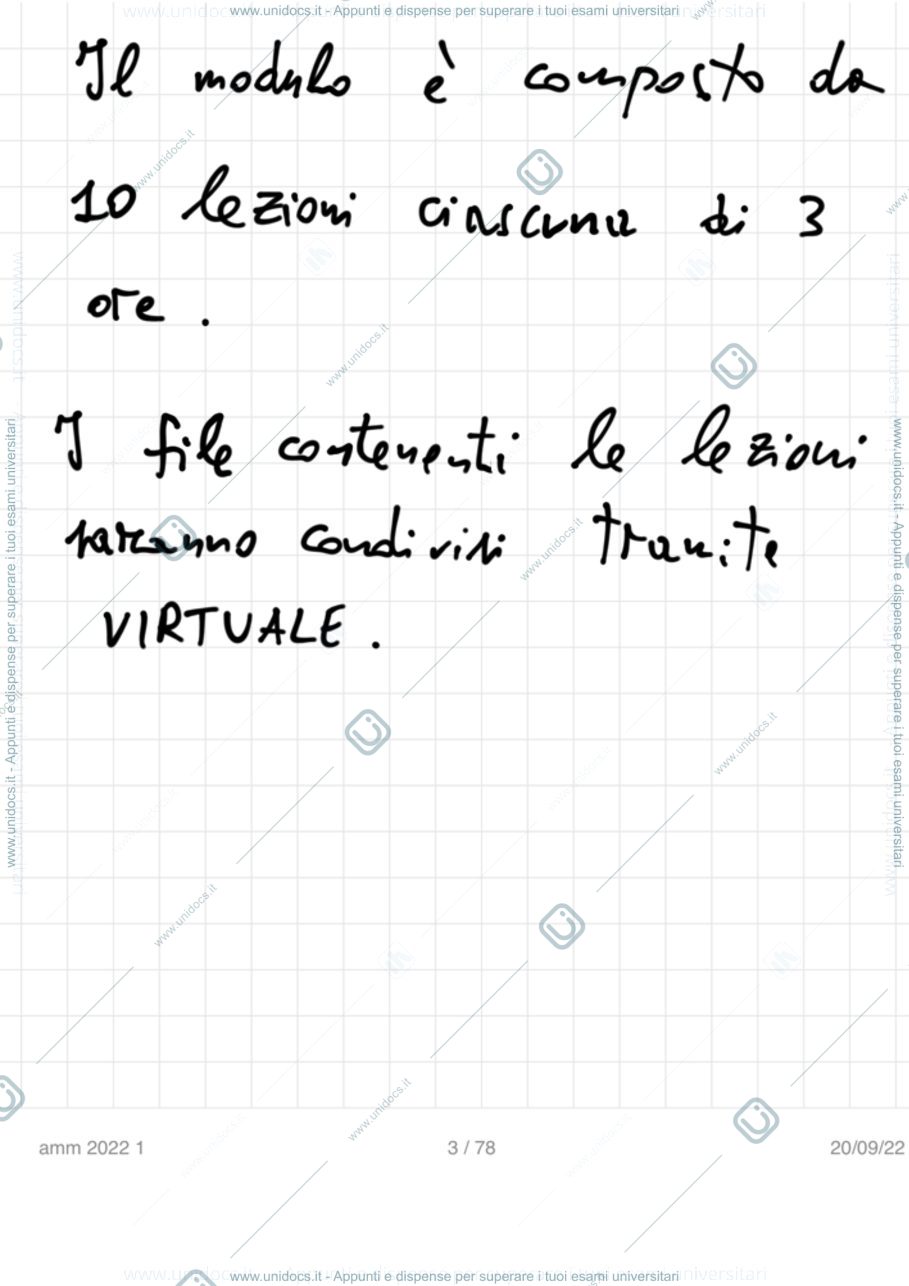 www.unidocs.it - Appunti e dispense per superare i tuoi esami universitari
Il modulo è composto da
10 lezioni ciascuna di 3
ore.
I file contenenti le lezioni
saranno condivisi tramite
VIRTUALE.
www.unidocs.it - Appunti e dispense per superare i tuoi esami universitari
www.unidocs.it - Appunti e dispense per superare i tuoi esami universitari
www.unidocs.it
www.unidocs.it
www.unidocs.it
www.unidocs.it
www.unidocs.it
www.unidocs.it
amm 2022 1
3 / 78
20/09/22
www.unidocs.it - Appunti e dispense per superare i tuoi esami universitari